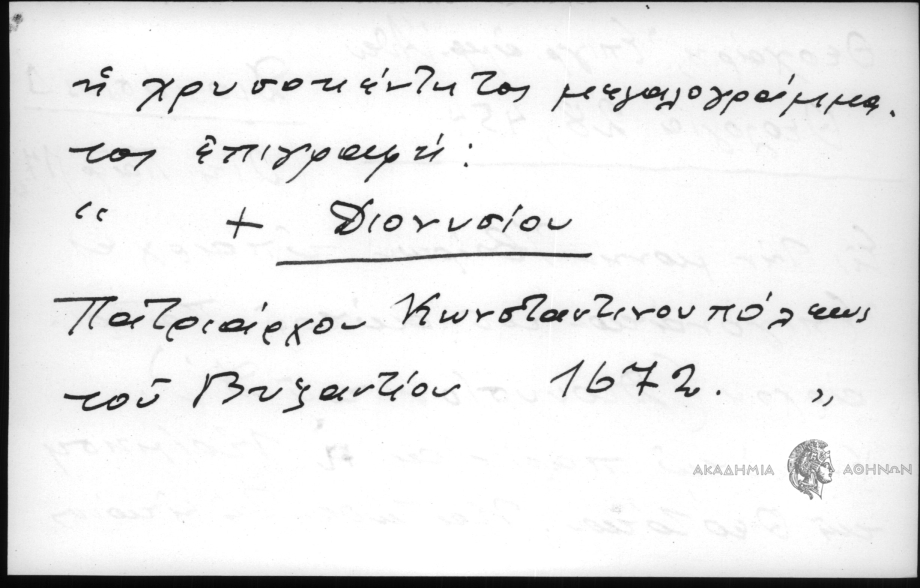 ἡ χρυσοκέντητος μεγαλογράμμα.
τος ἐπιγραφή:
“ + Διονυσίου
Πατριάρχου Κωνσταντινουπόλεως
τοῦ Βυζαντίου 1672. „
ΑΚΑΔΗΜΙΑ ΑΘΗΝΩΝ